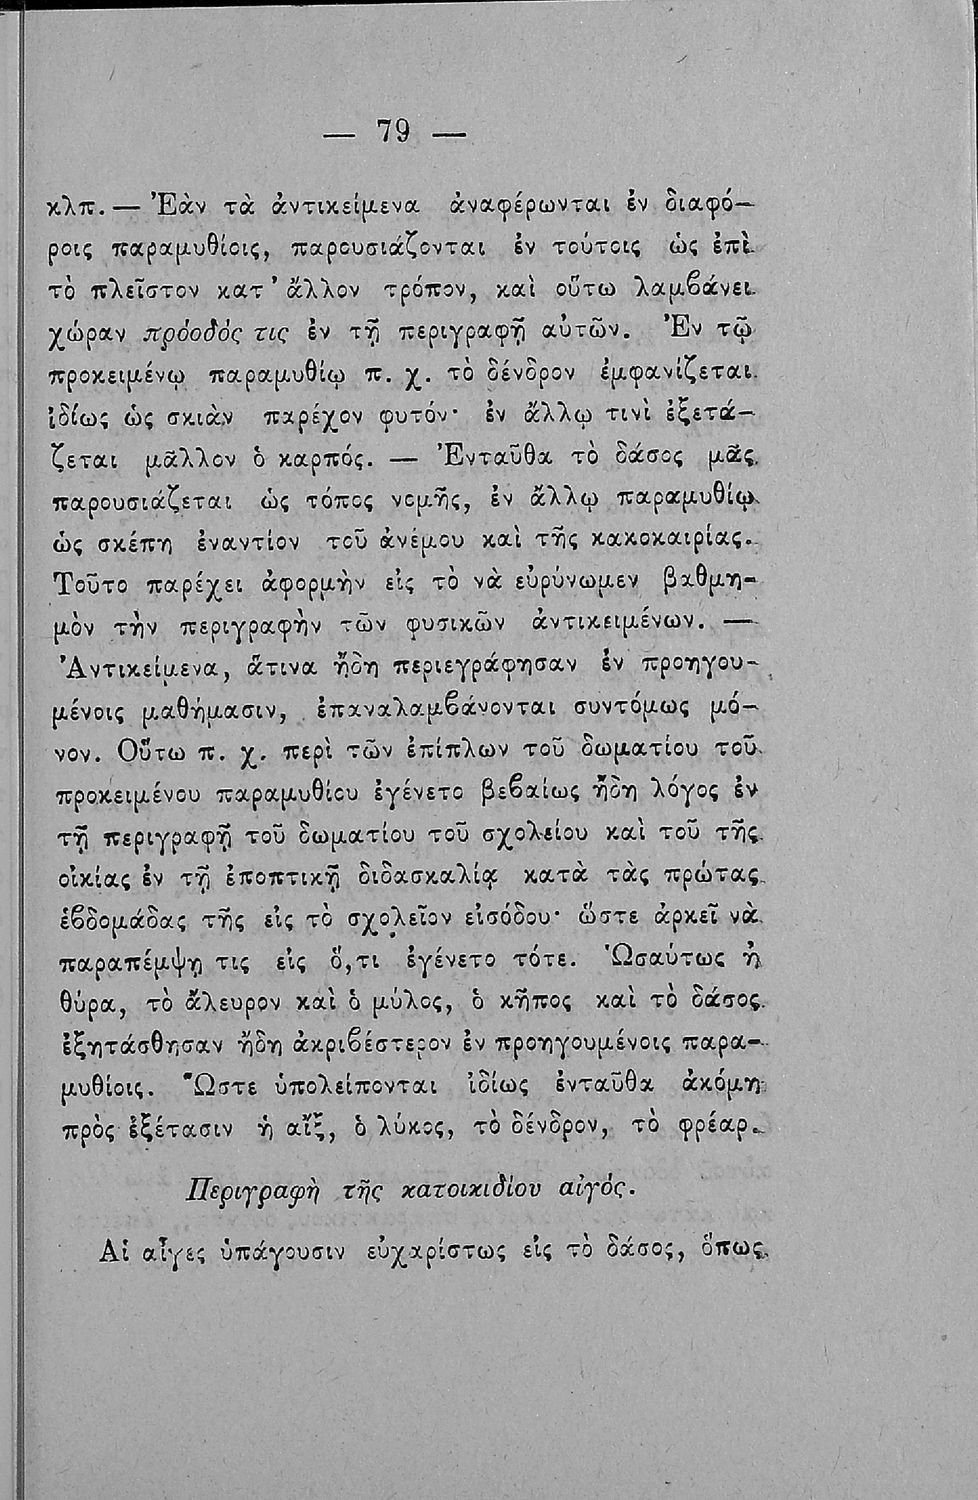 — 79 —
κλπ. — Ἐὰν τὰ ἀντικείμενα ἀναφέρωνται ἐν διαφό-
ροις παραμυθίοις, παρουσιάζονται ἐν τούτοις ὡς ἐπὶ
τὸ πλεῖστον κατ' ἄλλον τρόπον, καὶ οὕτω λαμβάνει
χώραν πρόοδός τις ἐν τῇ περιγραφῇ αὐτῶν. Ἐν τῷ
προκειμένῳ παραμυθίῳ π. χ. τὸ δένδρον ἐμφανίζεται
ἰδίως ὡς σκιὰν παρέχον φυτόν· ἐν ἄλλῳ τινὶ ἐξετά-
ζεται μᾶλλον ὁ καρπός. — Ἐνταῦθα τὸ δάσος μᾶς
παρουσιάζεται ὡς τόπος νομῆς, ἐν ἄλλῳ παραμυθίῳ
ὡς σκέπη ἐναντίον τοῦ ἀνέμου καὶ τῆς κακοκαιρίας.
Τοῦτο παρέχει ἀφορμὴν εἰς τὸ νὰ εὑρύνωμεν βαθμη-
μὸν τὴν περιγραφὴν τῶν φυσικῶν ἀντικειμένων. —
Ἀντικείμενα, ἅτινα ἤδη περιεγράφησαν ἐν προηγου-
μένοις μαθήμασιν, ἐπαναλαμβάνονται συντόμως μό-
νον. Οὕτω π. χ. περὶ τῶν ἐπίπλων τοῦ δωματίου τοῦ
προκειμένου παραμυθίου ἐγένετο βεβαίως ἤδη λόγος ἐν
τῇ περιγραφῇ τοῦ δωματίου τοῦ σχολείου καὶ τοῦ τῆς
οἰκίας ἐν τῇ ἐποπτικῇ διδασκαλίᾳ κατὰ τὰς πρώτας
ἑβδομάδας τῆς εἰς τὸ σχολεῖον εἰσόδου· ὥστε ἀρκεῖ νὰ
παραπέμψῃ τις εἰς ὅ,τι ἐγένετο τότε. Ὡσαύτως ἡ
θύρα, τὸ ἄλευρον καὶ ὁ μύλος, ὁ κῆπος καὶ τὸ δάσος
ἐξητάσθησαν ἤδη ἀκριβέστερον ἐν προηγουμένοις παρα-
μυθίοις. Ὥστε ὑπολείπονται ἰδίως ἐνταῦθα ἀκόμη
πρὸς ἐξέτασιν ἡ αἴξ, ὁ λύκος, τὸ δένδρον, τὸ φρέαρ.
Περιγραφὴ τῆς κατοικιδίου αἰγός.
Αἱ αἶγες ὑπάγουσιν εὐχαρίστως εἰς τὸ δάσος, ὅπως